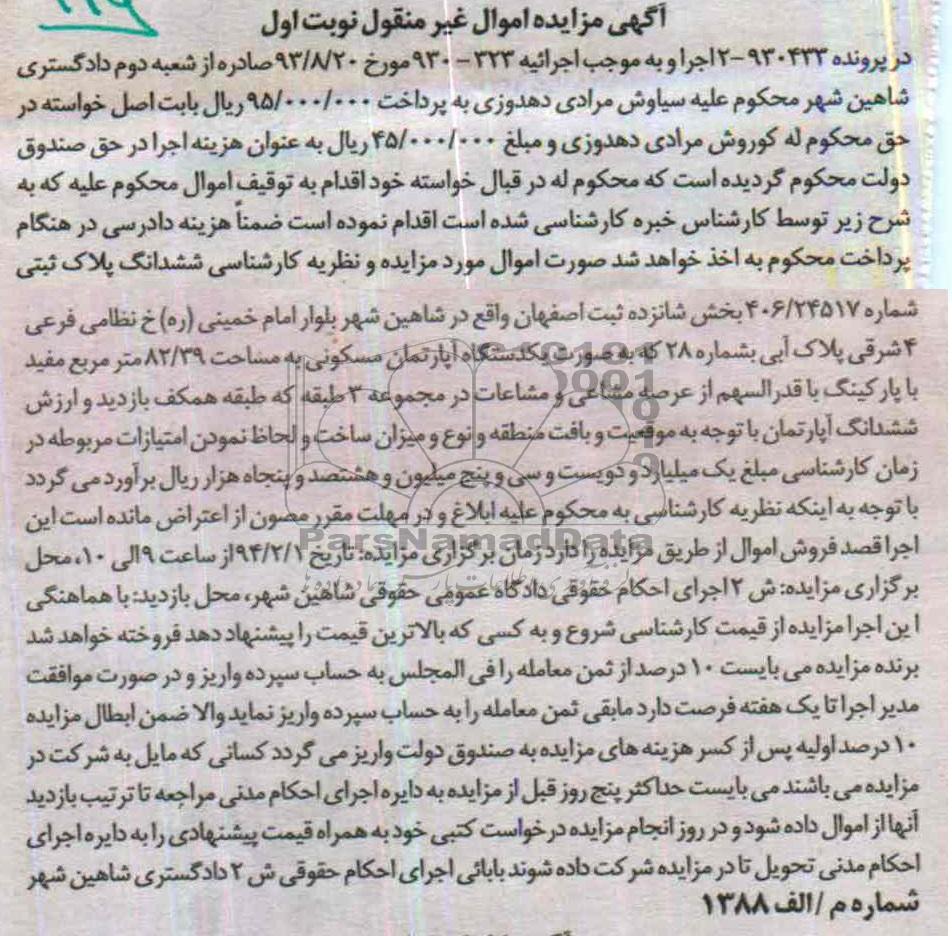 آگهی مزایده اموال غیر منقول نوبت اول
در پرونده ۹۳۰۴۳۳-۲اجرا و به موجب اجرائیه ۳۲۳-۹۳۰مورخ ۹۳/۸/۲۰صادره از شعبه دوم دادگستری
شاهین شهر محکوم علیه سیاوش مرادی دهدوزی به پرداخت ۹۵/۰۰۰/۰۰۰ریال بابت اصل خواسته در
حق محکوم له کوروش مرادی دهدوزی و مبلغ ۴۵/۰۰۰/۰۰۰ ریال به عنوان هزینه اجرا در حق صندوق
دولت محکوم گردیده است که محکوم له در قبال خواسته خود اقدام به توقیف اموال محکوم علیه که به
شرح زیر توسط کارشناس خبره کارشناسی شده است اقدام نموده است ضمناً هزینه دادرسی در هنگام
پرداخت محکوم به اخذ خواهد شد صورت اموال مورد مزایده و نظریه کارشناسی ششدانگ پلاک ثبتی
شماره ۴۰۶/۲۴۵۱۷ بخش شانزده ثبت اصفهان واقع در شاهین شهر بلوار امام خمینی (ره) خ نظامی فرعی
۴شرقی پلاک آبی بشماره ۲۸ که به صورت یکدستگاه آپارتمان مسکونی به مساحت ۸۲/۳۹ متر مربع مفید
با پارکینگ با قدرالسهم از عرصه مشاعی و مشاعات در مجموعه ۳طبقه که طبقه همکف بازدید و ارزش
ششدانگ آپارتمان با توجه به موقعیت و بافت منطقه و نوع و میزان ساخت و لحاظ نمودن امتیازات مربوطه در
زمان کارشناسی مبلغ یک میلیارد و دویست و سی و پنج میلیون و هشتصد و پنجاه هزار ریال برآورد می گردد
با توجه به اینکه نظریه کارشناسی به محکوم علیه ابلاغ و در مهلت مقرر مصون از اعتراض مانده است این
اجرا قصد فروش اموال از طریق مزایده را دارد زمان برگزاری مزایده: تاریخ ۹۴/۲/۱از ساعت ۹الی ۱۰، محل
برگزاری مزایده: ش ۲ اجرای احکام حقوقی دادگاه عمومی حقوقی شاهین شهر، محل بازدید: با هماهنگی
این اجرا مزایده از قیمت کارشناسی شروع و به کسی که بالاترین قیمت را پیشنهاد دهد فروخته خواهد شد
برنده مزایده می بایست ۱۰ درصد از ثمن معامله را فی المجلس به حساب سپرده واریز و در صورت موافقت
مدیر اجرا تا یک هفته فرصت دارد مابقی ثمن معامله را به حساب سپرده واریز نماید والا ضمن ابطال مزایده
۱۰ درصد اولیه پس از کسر هزینه های مزایده به صندوق دولت واریز می گردد کسانی که مایل به شرکت در
مزایده می باشند می بایست حداکثر پنج روز قبل از مزایده به دایره اجرای احکام مدنی مراجعه تا ترتیب بازدید
آنها از اموال داده شود و در روز انجام مزایده درخواست کتبی خود به همراه قیمت پیشنهادی را به دایره اجرای
احکام مدنی تحویل تا در مزایده شرکت داده شوند بابائی اجرای احکام حقوقی ش ۲ دادگستری شاهین شهر
شماره م /الف ۱۳۸۸
ParsNamadData